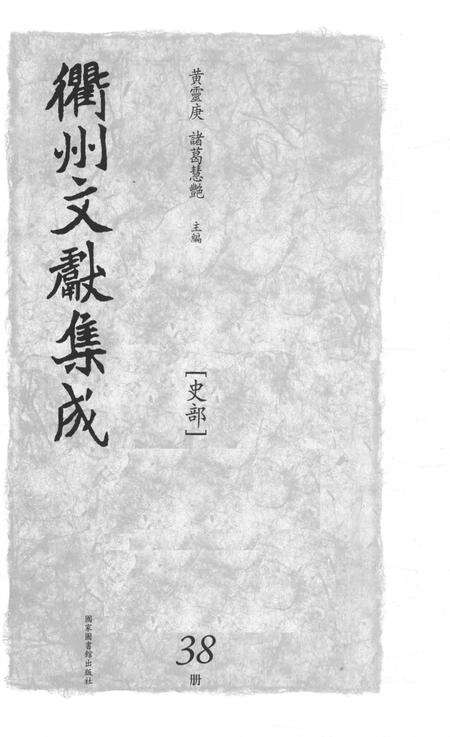 黃靈庚 諸葛慧艷 主編
衢州文獻集成
[史部]
38
册
國家圖書館出版社